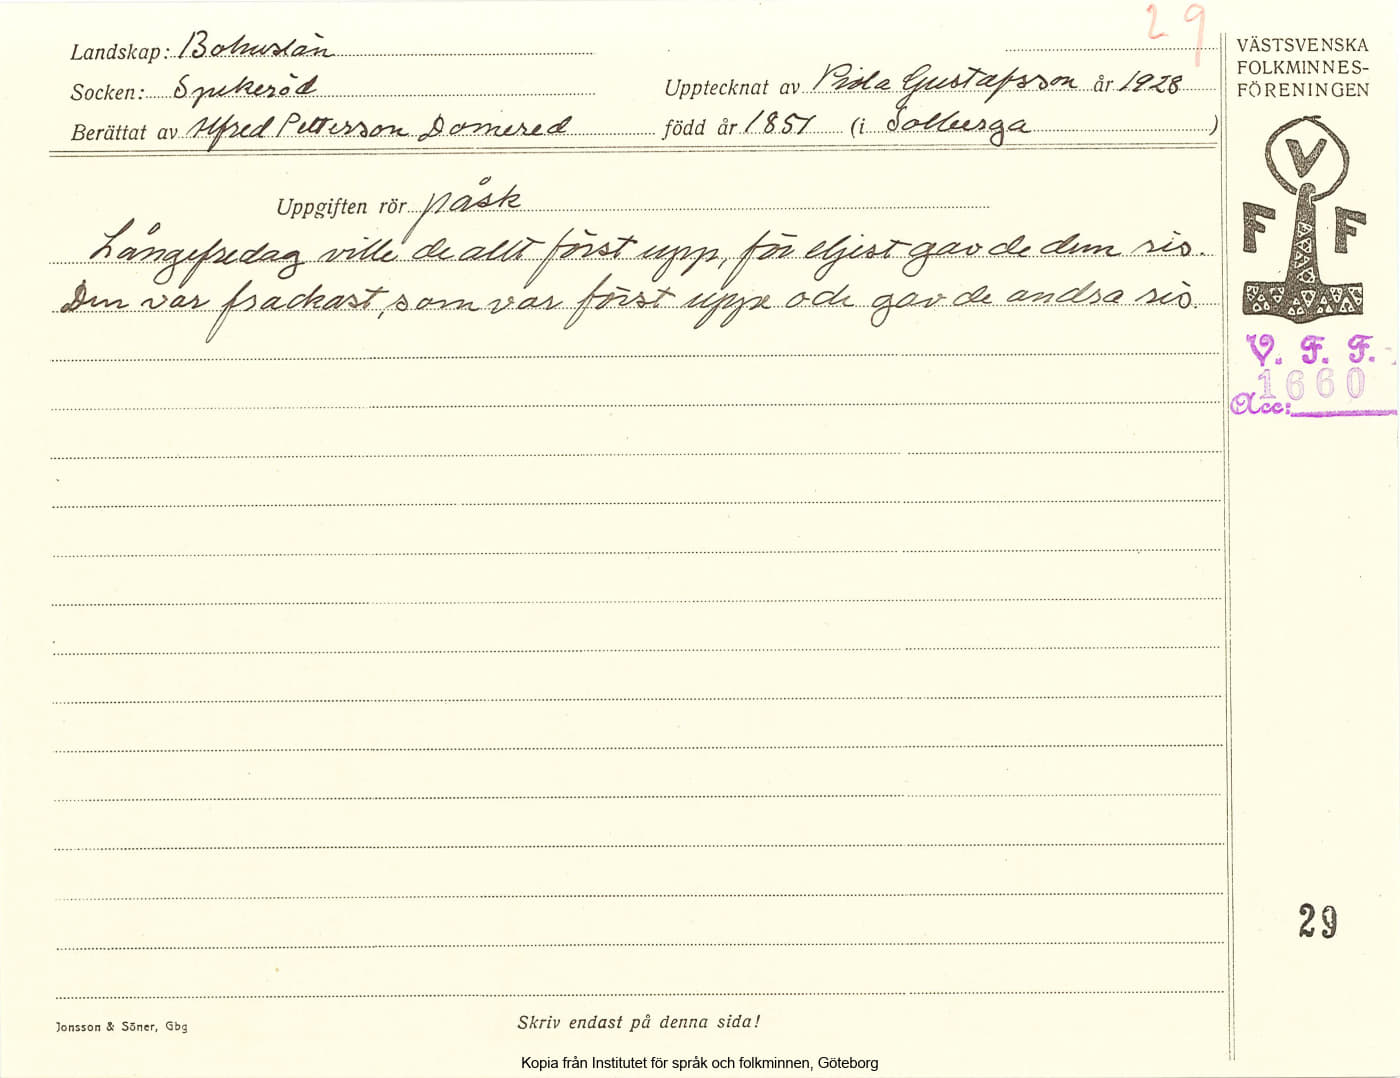 29
Landskap: Bohuslän
Socken: Spekeröd
Upptecknat av Viola Gustafsson år 1928
Berättat av Alfred Pettersson Domered född år 1851 (i Solberga)
VÄSTSVENSKA
FOLKMINNES-
FÖRENINGEN
V
F F
V. F. F.
1660
Acc:
Uppgiften rör påsk
Långefredag ville de allt först upp, för eljest gav de dem ris.
Den var frackast, som var först uppe och gav de andra ris.
29
Jonsson & Söner, Gbg
Skriv endast på denna sida!
Kopia från Institutet för språk och folkminnen, Göteborg